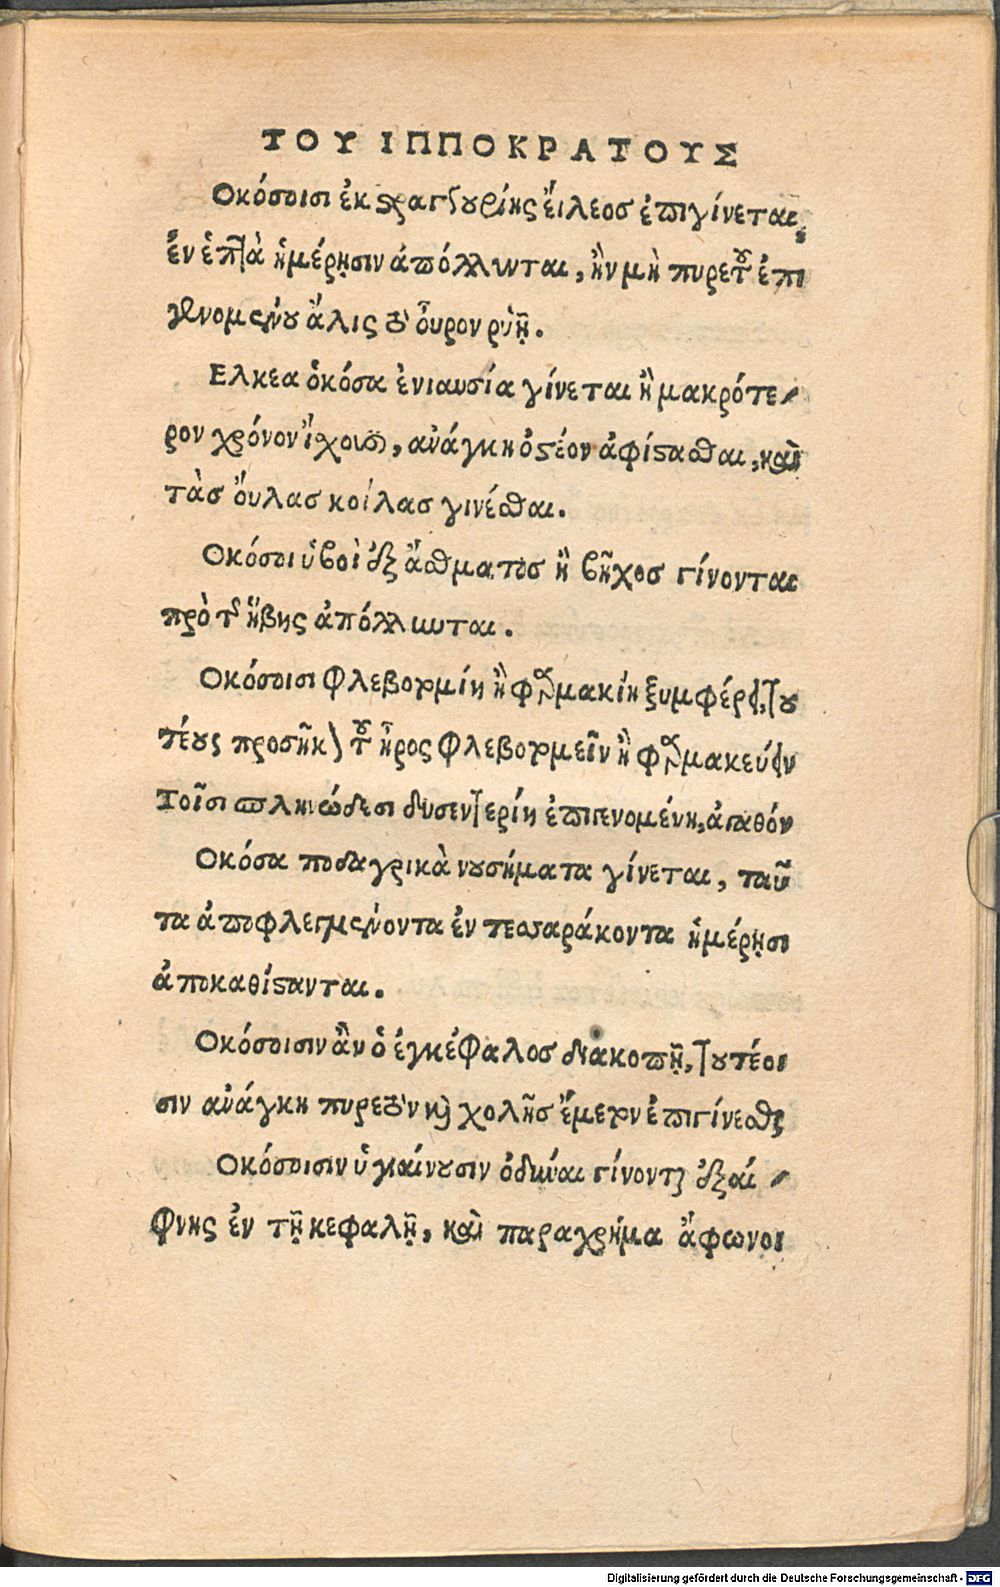 ΤΟΥ ΙΠΠΟΚΡΑΤΟΥΣ
Οκόσοισι ἐκ στραγγουρίης ἔιλεος ἐπιγίνεται,
ἔν ἑπτὰ ἡμέρῃσιν ἀπόλλυνται, ἢν μὴ πυρετοῦ ἐπι
γενομένου ἅλις τὸ οὖρον ρυῇ.
Ελκεα ὁκόσα ἐνιαυσία γίνεται ἢ μακρότε-
ρον χρόνον ἴχουσι, ἀνάγκη ὀστέον ἀφίστασθαι, καὶ
τὰσ ὄυλασ κοίλασ γινέσθαι.
Οκόσοι ὑβοὶ ἐξ ἄσθματοσ ἢ βῆχοσ γίνονται
πρὸ τῆς ἥβης ἀπόλλυνται.
Οκόσοισι φλεβοτομίη ἢ φαρμακίη ξυμφέρει, του
τέους προσῆκει τοῦ ἦρος φλεβοτομεῖν ἢ φαρμακεύειν
Τοῖσι σπληνώδεσι δυσεντερίη ἐπιγενομένη, ἀγαθόν
Οκόσα ποδαγρικὰ νουσήματα γίνεται, ταῦ
τα ἀποφλεγμένοντα ἐν τεσσαράκοντα ἡμέρῃσι
ἀποκαθίστανται.
Οκόσοισιν ἂν ὁ ἐγκέφαλοσ διακοπῇ, τουτέοι
σιν ἀνάγκη πυρετὸν καὶ χολῆσ ἔμετον ἐπιγίνεσθαι
Οκόσοισιν ὑγιαίνουσιν ὀδύναι γίνονται ἐξαί-
φνης ἐν τῇ κεφαλῇ, καὶ παραχρήμα ἄφωνοι
Digitalisierung gefördert durch die Deutsche Forschungsgemeinschaft - DFG